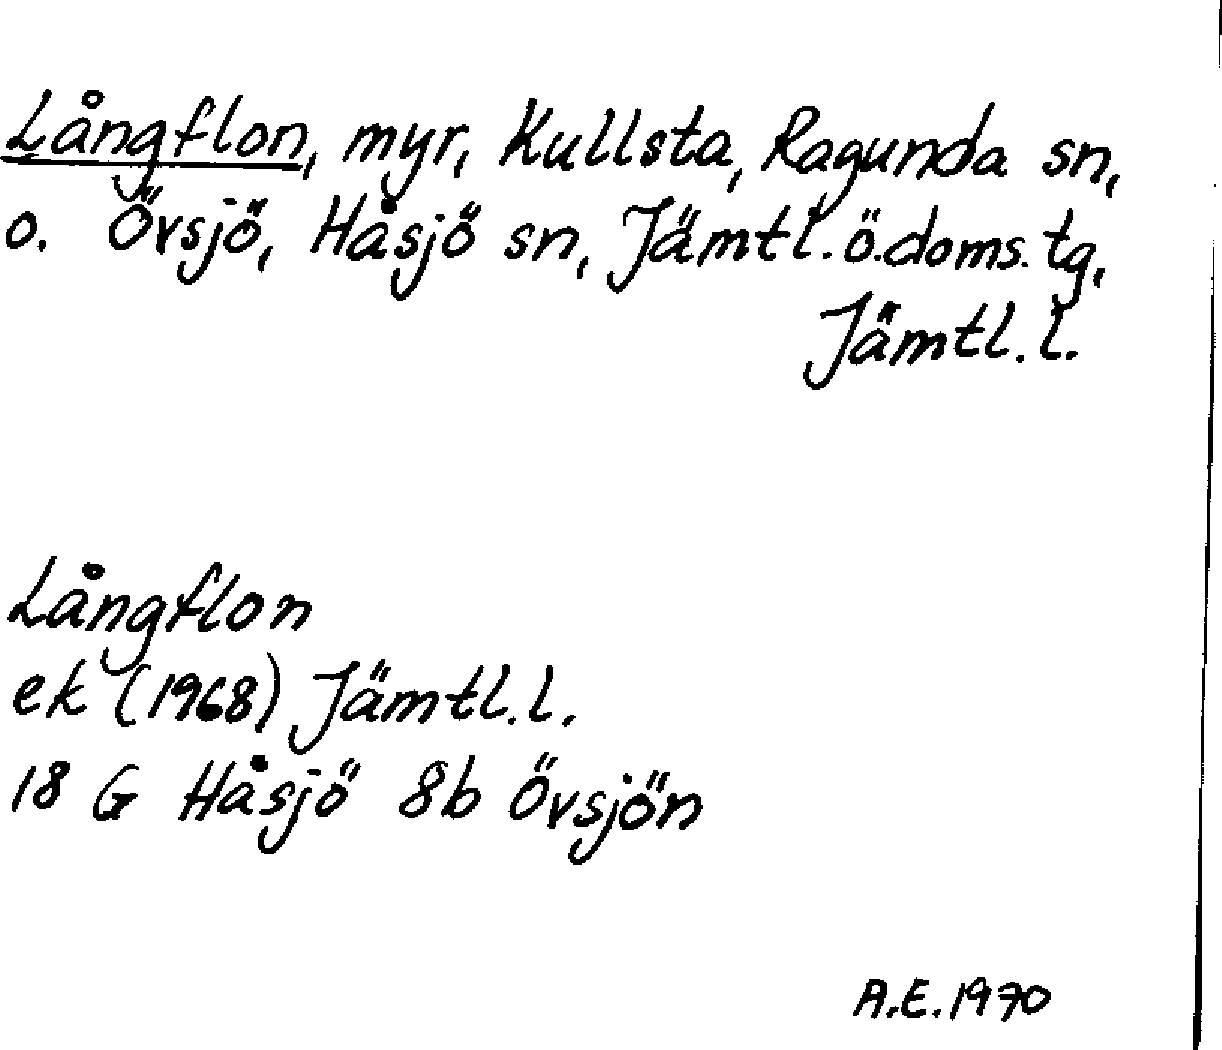 Långflon, myr, Kullsta, Ragunda sn,
o. Övsjö, Håsjö sn, Jämtl.ö.doms.tg,
Jämtl.l.
Långflon
ek (1968) Jämtl.l.
18 G Håsjö 8b Övsjön
A.E.1970